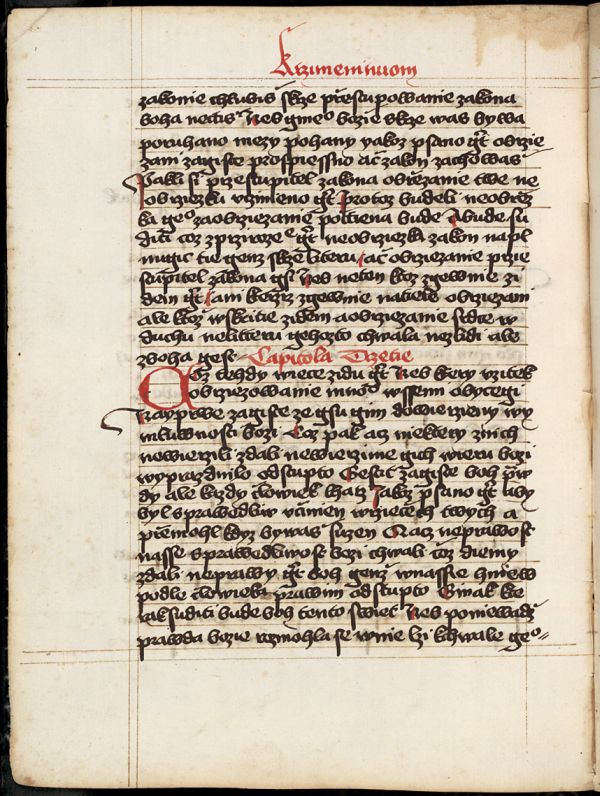 Krzimeninuom
zakonie chlubis skrze przestupowanie zakona
boha nectis Neb gmeo bozie skrze was bywa
poruhano mezy pohany yakoz psano gt obrzie
zani zagiste prospiessno ac zakon zachowas
Pakli si przestupitel zakona obrzezanie twe ne
obrziezka uczineno gt Protoz budeli neobrzez
ka geo zaobrziezanie poctiena bude A bude su
diti coz zprziroze e gt neobrziezka zakon napl
nugic tie genz skrze literu ac obrziezanie przie
stupitel zakona gsi Neb neten ktoz zgewnie zi
dem gt ani kteriz zgewnie natiele obrziezani
ale ktoz wskritie zidem a obrziezanie srdce w
duchu ne litteru gehozto chwala nezlidi ale
zboha gest Capitola Trzetie
Coz tehdy wiece zidu gt Neb ktery uzitek
obrziezowanie mnoo wssemi obyczegi
Nayprwe zagiste ze gsu gim dowierzieny wy
mluwnosti bozi Coz pak acz niekterzy znich
newierzili zdali newierzime gich wieru bozi
wyprazdnilo odstupto Gestit zagiste boh praw
dy ale kazdy clowiek lharz Jakoz psano gt aby
byl sprawedliw w rzecech twych a
przemohl kdyz bywas suzen Nacz neprawost
nasse sprawedliwost bozi chwali coz diemy
zdali neprawy gt boh genz wnassie hniew
podle clowieka prawim odstupto Ginak ke
rak suditi bude boh tento swiet Neb poniewadz
prawda bozie rozmohla se w mie lzi k chwale geo